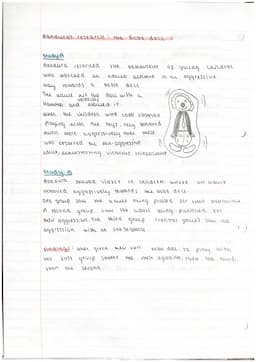 Bandura's research: the Bobo doll
Study A
Bandura recorded the behaviour of young children
who watched an adult behave in an aggressive
way towards a Bobo doll
The adult hit the doll with a
hammer and verbally abused it.
When the children were later observed
playing with the toys, they behaved
much more aggressively than those
who observed the non-aggressive
adult, demonstrating violence
Study B
Bandura showed videos to children where an adult
behaved aggressively towards the Bobo doll.
One group saw the adult being praised for their behaviour
A second group saw the adult being punished for
their aggression the third group (control group) saw the
aggression with no consequence.
Findings: when given their own Bobo doll to play with
the first group showed the most aggression, then the third,
then the second.